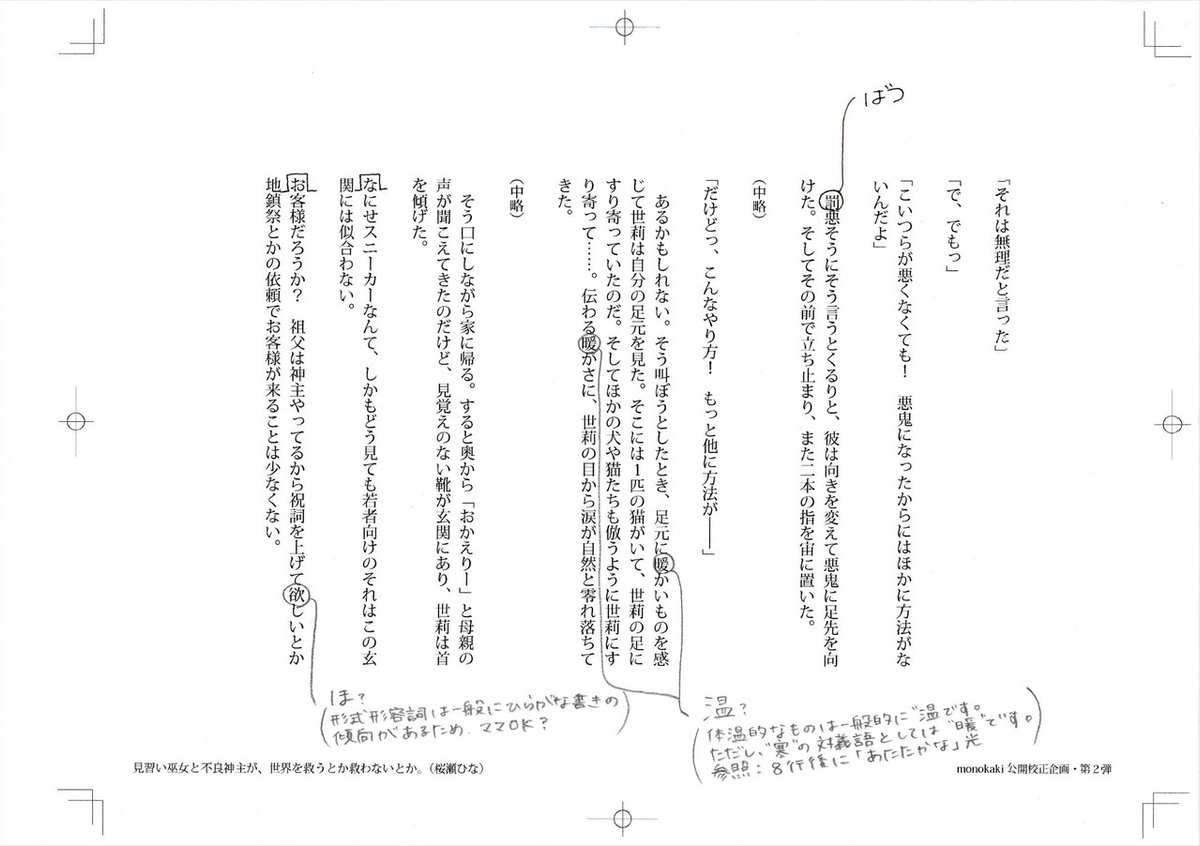 「それは無理だと言った」
「で、でもっ」
「こいつらが悪くなくても！　悪鬼になったからにはほかに方法がな
いんだよ」
　罰悪そうにそう言うとくるりと、彼は向きを変えて悪鬼に足先を向
けた。そしてその前で立ち止まり、また二本の指を宙に置いた。
（中略）
「だけどっ、こんなやり方！　もっと他に方法が――」
　あるかもしれない。そう叫ぼうとしたとき、足元に暖かいものを感
じて世莉は自分の足元を見た。そこには１匹の猫がいて、世莉の足に
すり寄っていたのだ。そしてほかの犬や猫たちも倣うように世莉にす
り寄って……。伝わる暖かさに、世莉の目から涙が自然と零れ落ちて
きた。
（中略）
　そう口にしながら家に帰る。すると奥から「おかえりー」と母親の
声が聞こえてきたのだけど、見覚えのない靴が玄関にあり、世莉は首
を傾げた。
なにせスニーカーなんて、しかもどう見ても若者向けのそれはこの玄
関には似合わない。
お客様だろうか？　祖父は神主やってるから祝詞を上げて欲しいとか
地鎮祭とかの依頼でお客様が来ることは少なくない。
ばつ
温？
（体温的なものは一般的に“温”です。
ただし、“寒”の対義語としては“暖”です。
参照：８行後に「あたたかな」光）
ほ？
（形式形容詞は一般にひらがな書きの
傾向があるため、ママOK？）
見習い巫女と不良神主が、世界を救うとか救わないとか。（桜瀬ひな）
monokaki 公開校正企画・第２弾